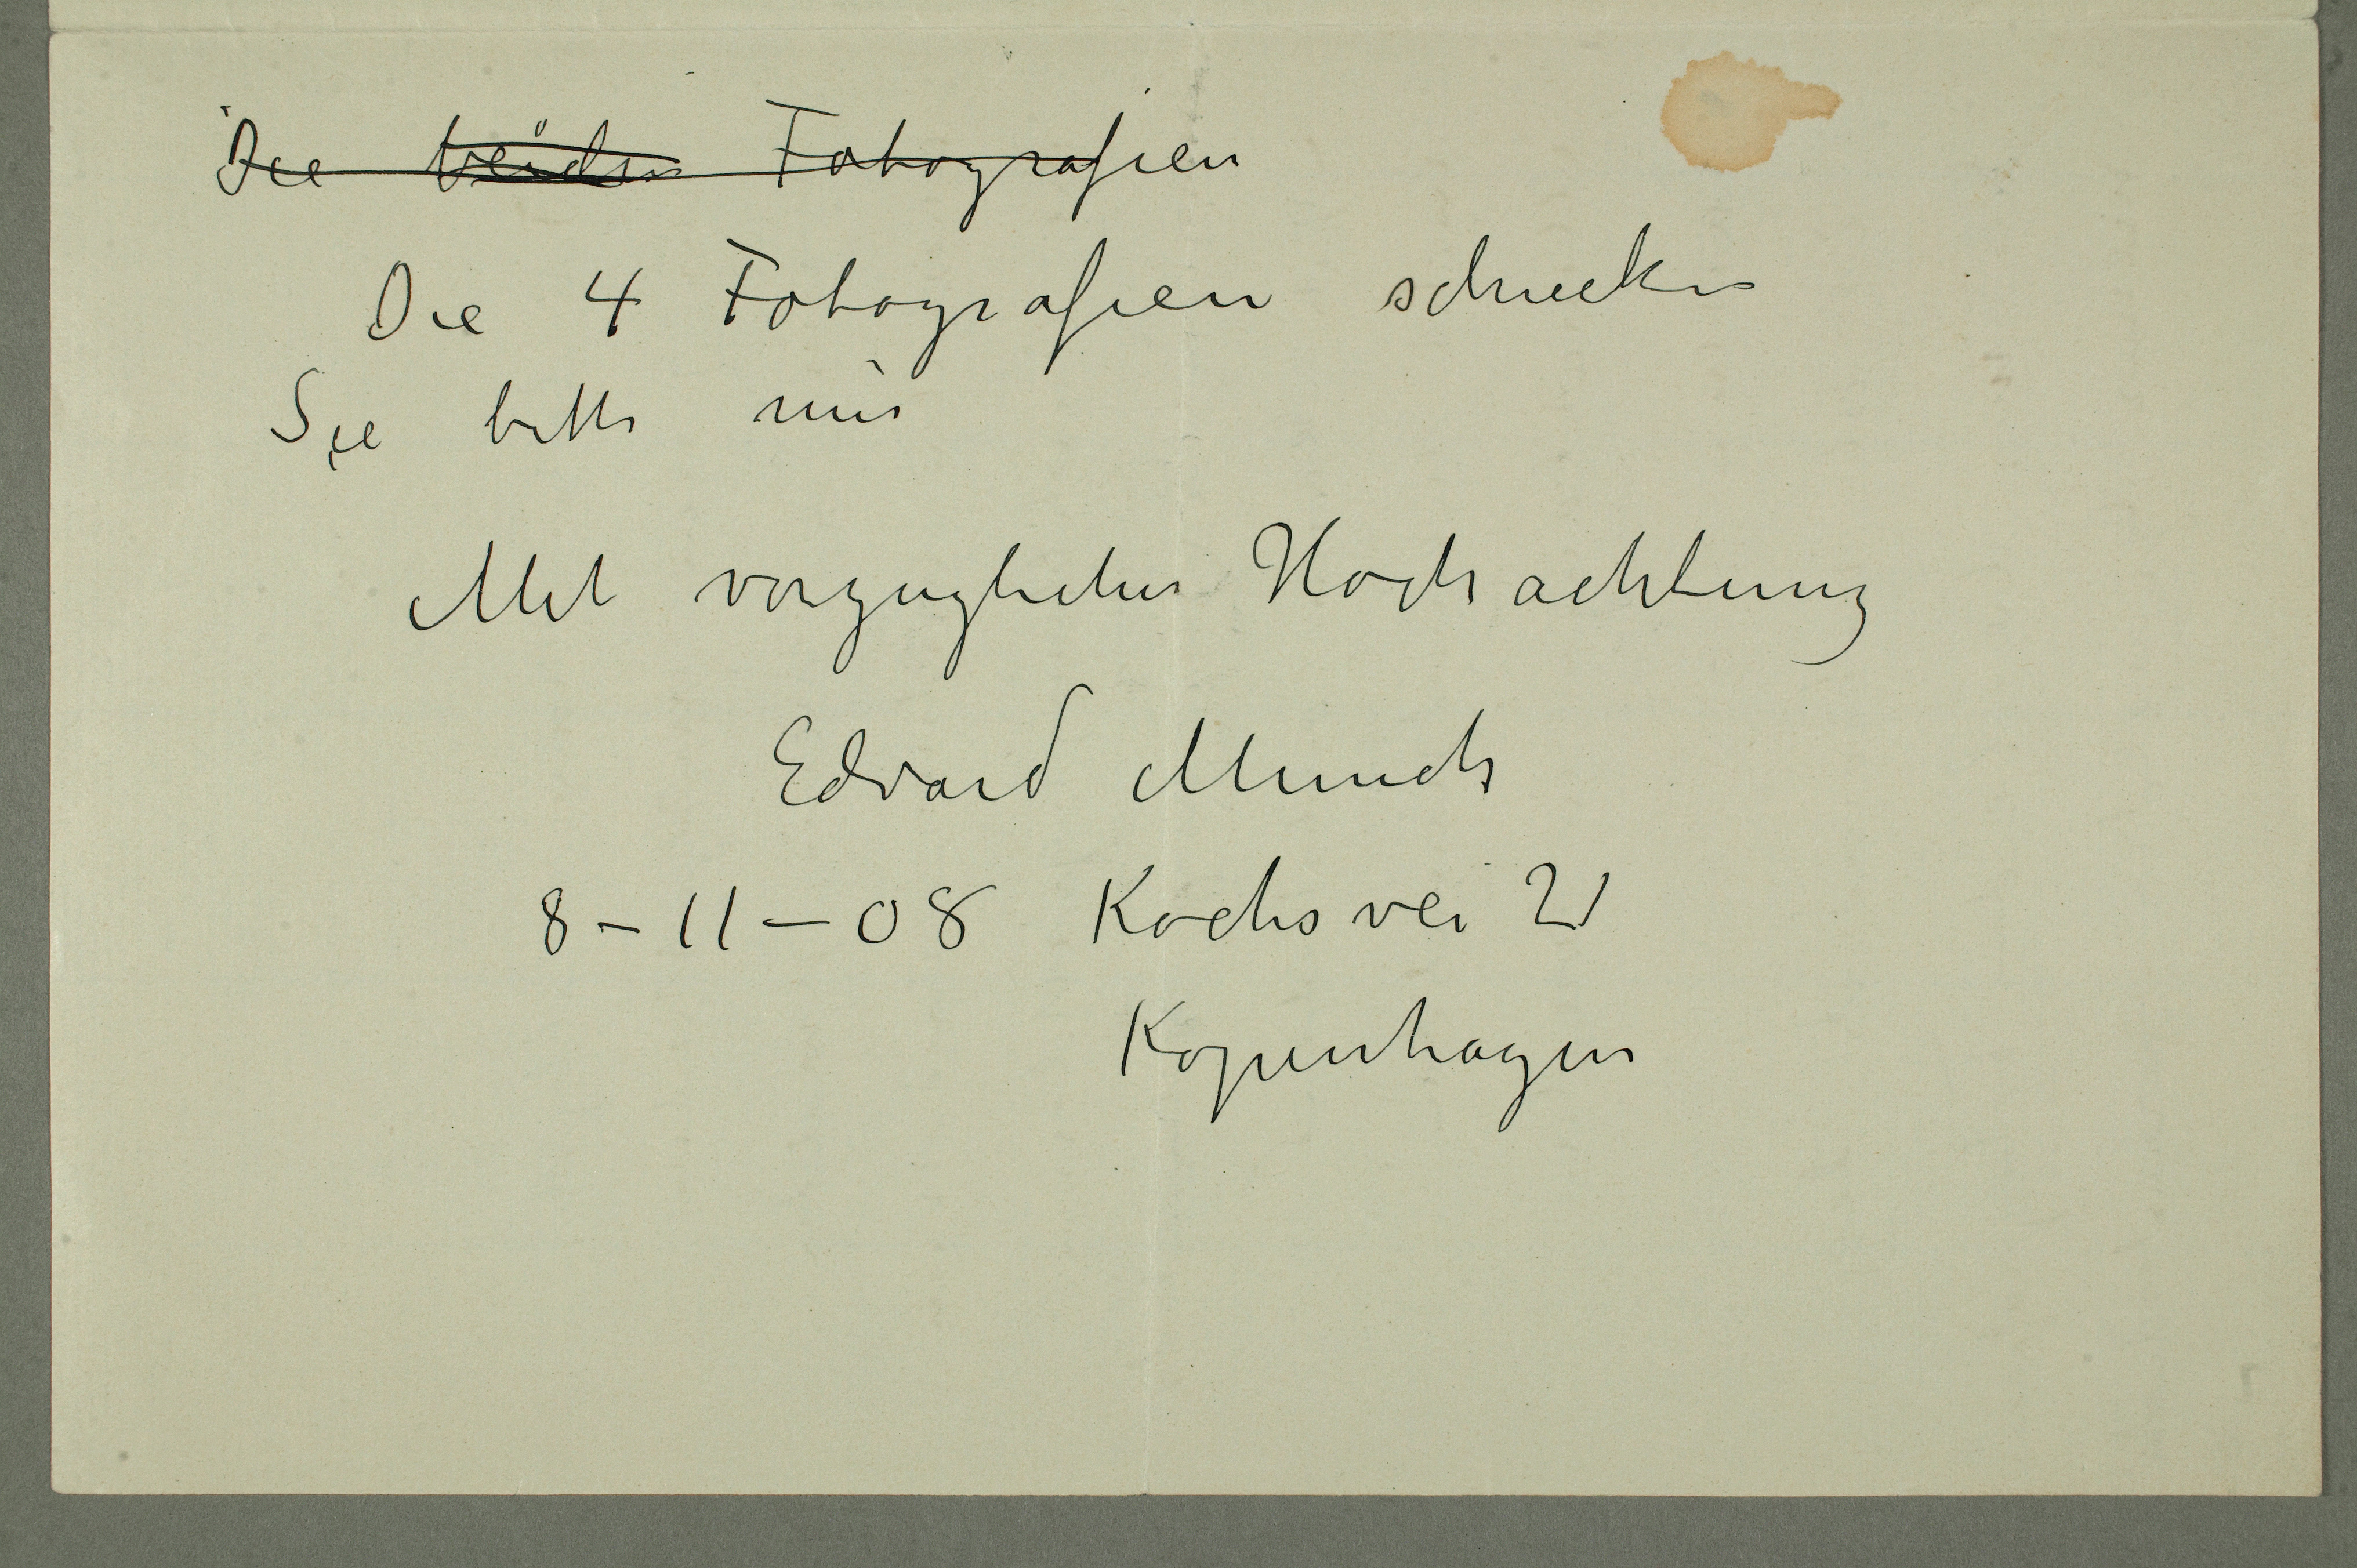 Die beiden Fotografien
Die 4 Fotografien schicken
Sie bitte mir
Mit vorzuglicher Hochachtung
Edvard Munch
8-11-08 Kochsvei 21
Kopenhagen